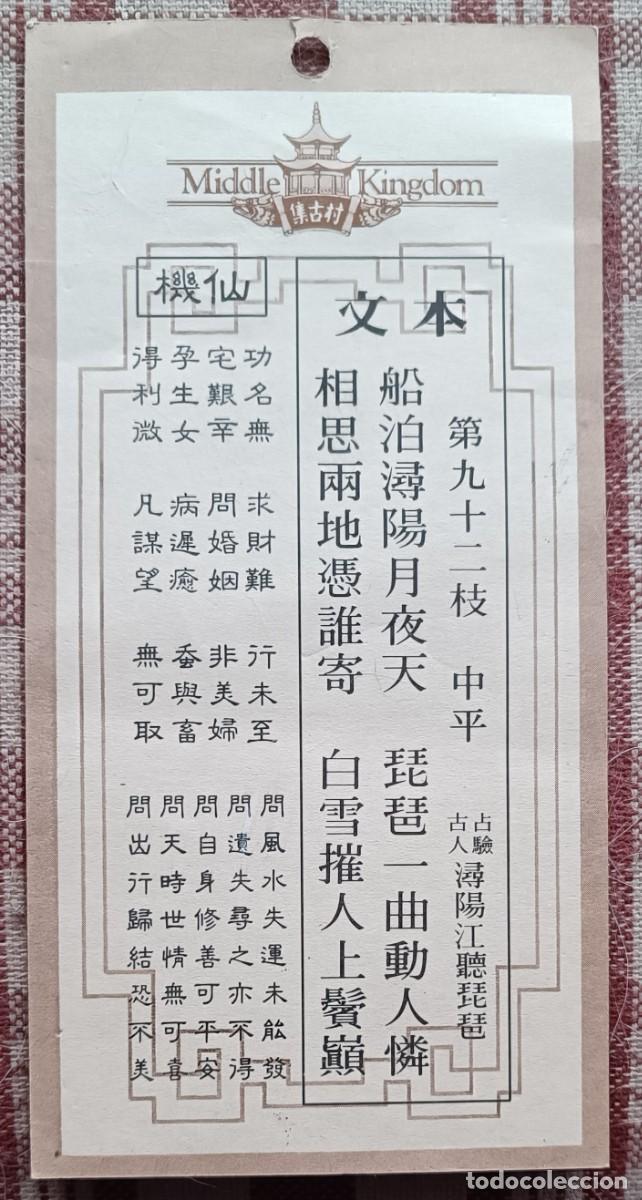 Middle Kingdom
集古村
本文
第九十二枝 中平 占驗古人 潯陽江聽琵琶
船泊潯陽月夜天 琵琶一曲動人憐
相思兩地憑誰寄 白雪摧人上鬢巔
仙機
功名無 求財難 行未至
宅艱辛 問婚姻 非美婦
孕生女 病遲癒 蚕與畜
得利微 凡謀望 無可取
問風水失運未能發
問遺失尋之亦不得
問自身修善可平安
問天時世情無可喜
問出行歸結恐不美
todocoleccion